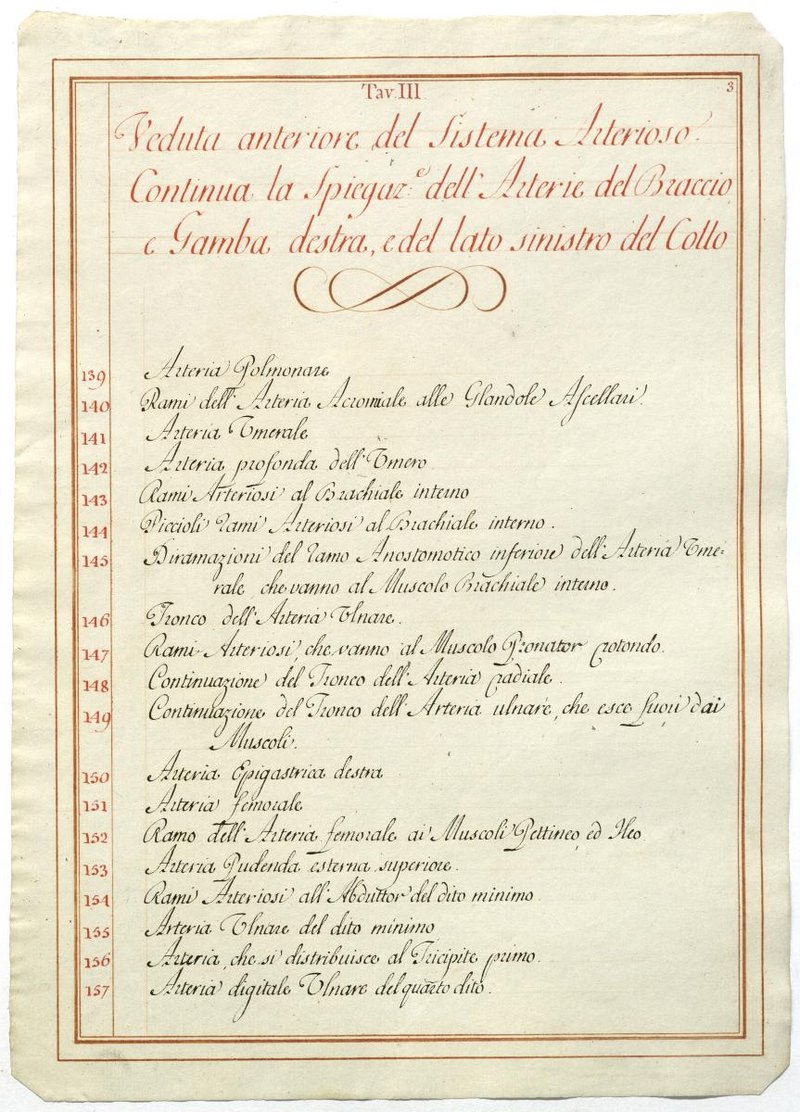 Tav. III
3
Veduta anteriore del Sistema Arterioso.
Continua la Spiegaz.e dell'Arterie del Braccio,
e Gamba destra, e del lato sinistro del Collo
139 Arteria Polmonare
140 Rami dell'Arteria Acromiale alle Glandole Ascellari.
141 Arteria Umerale
142 Arteria profonda dell'Umero
143 Rami Arteriosi al Brachiale interno
144 Piccioli rami Arteriosi al Brachiale interno.
145 Diramazioni del ramo Anostomotico inferiore dell'Arteria Ume-
rale, che vanno al Muscolo Brachiale interno.
146 Tronco dell'Arteria Ulnare.
147 Rami Arteriosi, che vanno al Muscolo Pronator rotondo.
148 Continuazione del Tronco dell'Arteria radiale.
149 Continuazione del Tronco dell'Arteria ulnare, che esce fuori dai
Muscoli.
150 Arteria Epigastrica destra
151 Arteria femorale
152 Ramo dell'Arteria femorale ai Muscoli Pettineo, ed Ileo
153 Arteria Pudenda esterna superiore.
154 Rami Arteriosi all'Abduttor del dito minimo
155 Arteria Ulnare del dito minimo
156 Arteria, che si distribuisce al Tricipite primo.
157 Arteria digitale Ulnare del quarto dito.